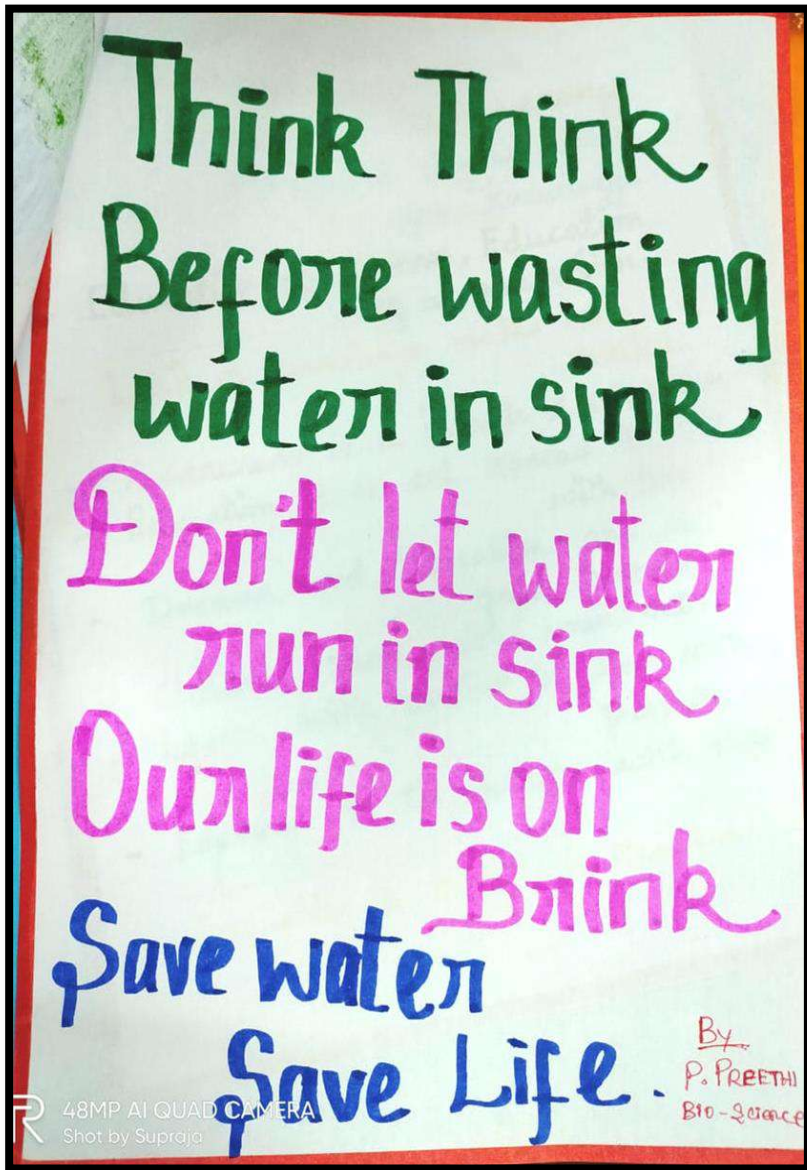 Think Think
Before wasting
water in sink
Don't let water
run in sink
Our life is on
Brink
Save water
Save Life.
By
P. PREETHI
Bio-Science
48MP AI QUAD CAMERA
Shot by Supraja